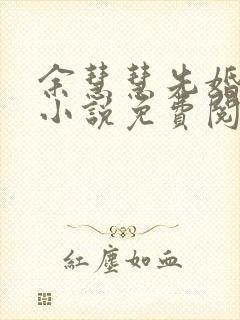 余慧慧先婚
小說免費閱
紅塵如血